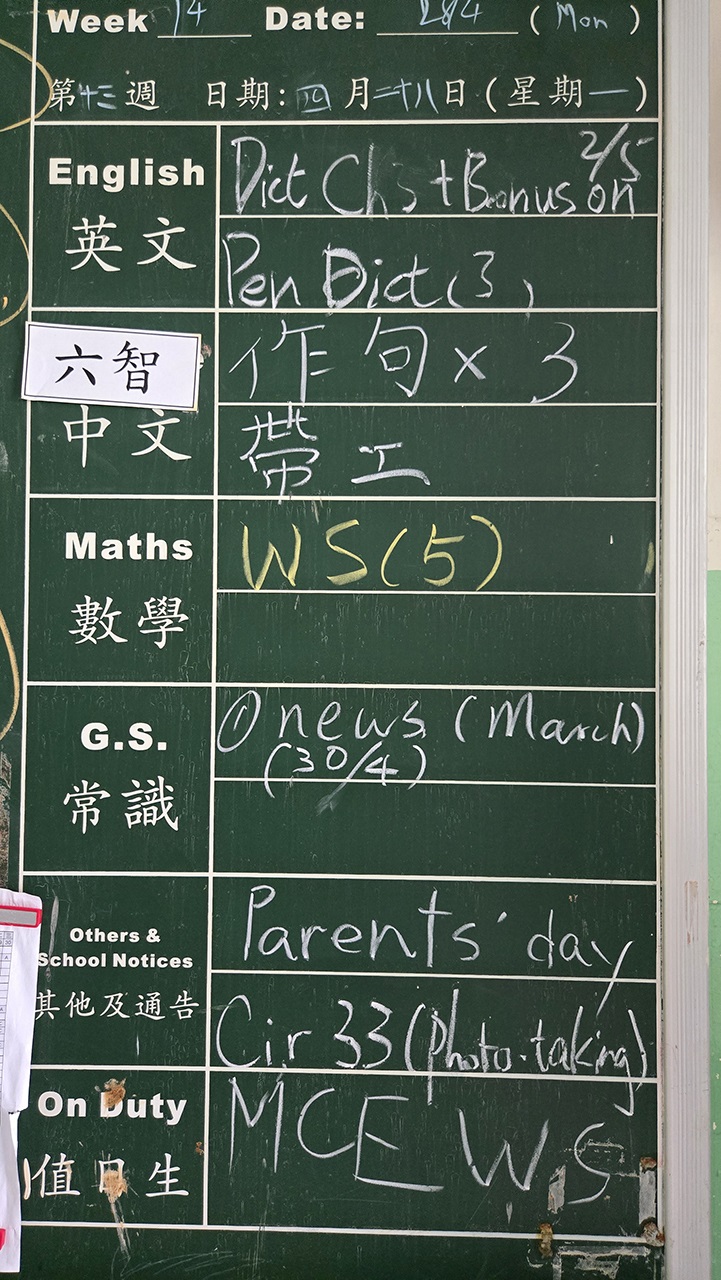 Week 14 Date: 28/4 (Mon)
第十三週 日期:四月二十八日(星期一)
English
英文
Dict Ch3 + Bonus on 2/5
Pen Dict(3)
六智
中文
作句 x 3
帶工
Maths
數學
WS(5)
G.S.
常識
① news (March)
(30/4)
Others &
School Notices
其他及通告
Parents' day
Cir 33 (photo-taking)
On Duty
值日生
MCE WS